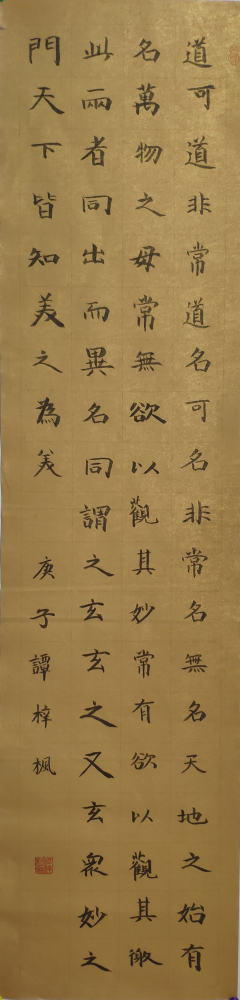 道可道非常道名可名非常名無名天地之始有
名萬物之母常無欲以觀其妙常有欲以觀其徼
此兩者同出而異名同謂之玄玄之又玄衆妙之
門天下皆知美之為美 庚子譚梓楓